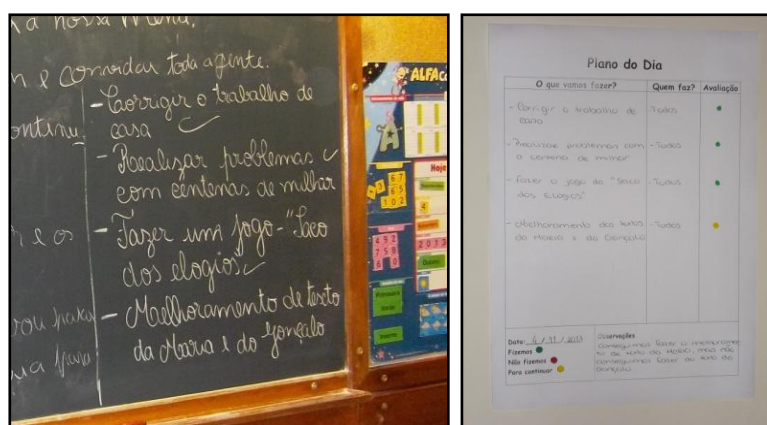 a nossa
e convidar toda a gente.
- Corrigir o trabalho de
casa
- Realizar problemas
com centenas de milhar
- Fazer um jogo - "Saco
dos elogios"
- Melhoramento de texto
da Maria e do Gonçalo
continu
r e os
ALFA
A
Hoje
6 7
6 5
1 0 2
2 0 1 3
Plano do Dia
O que vamos fazer? Quem faz? Avaliação
- Corrigir o trabalho de - Todos
casa
- Realizar problemas com - Todos
a centena de milhar
- Fazer o jogo do "Saco - Todos
dos Elogios"
- Melhoramento dos textos - Todos
da Maria e do Gonçalo
Data: 4 / 11 / 2013
Fizemos
Não fizemos
Para continuar
Observações
Conseguimos fazer o melhoramen-
to do texto da Maria, mas não
conseguimos fazer do texto do
Gonçalo